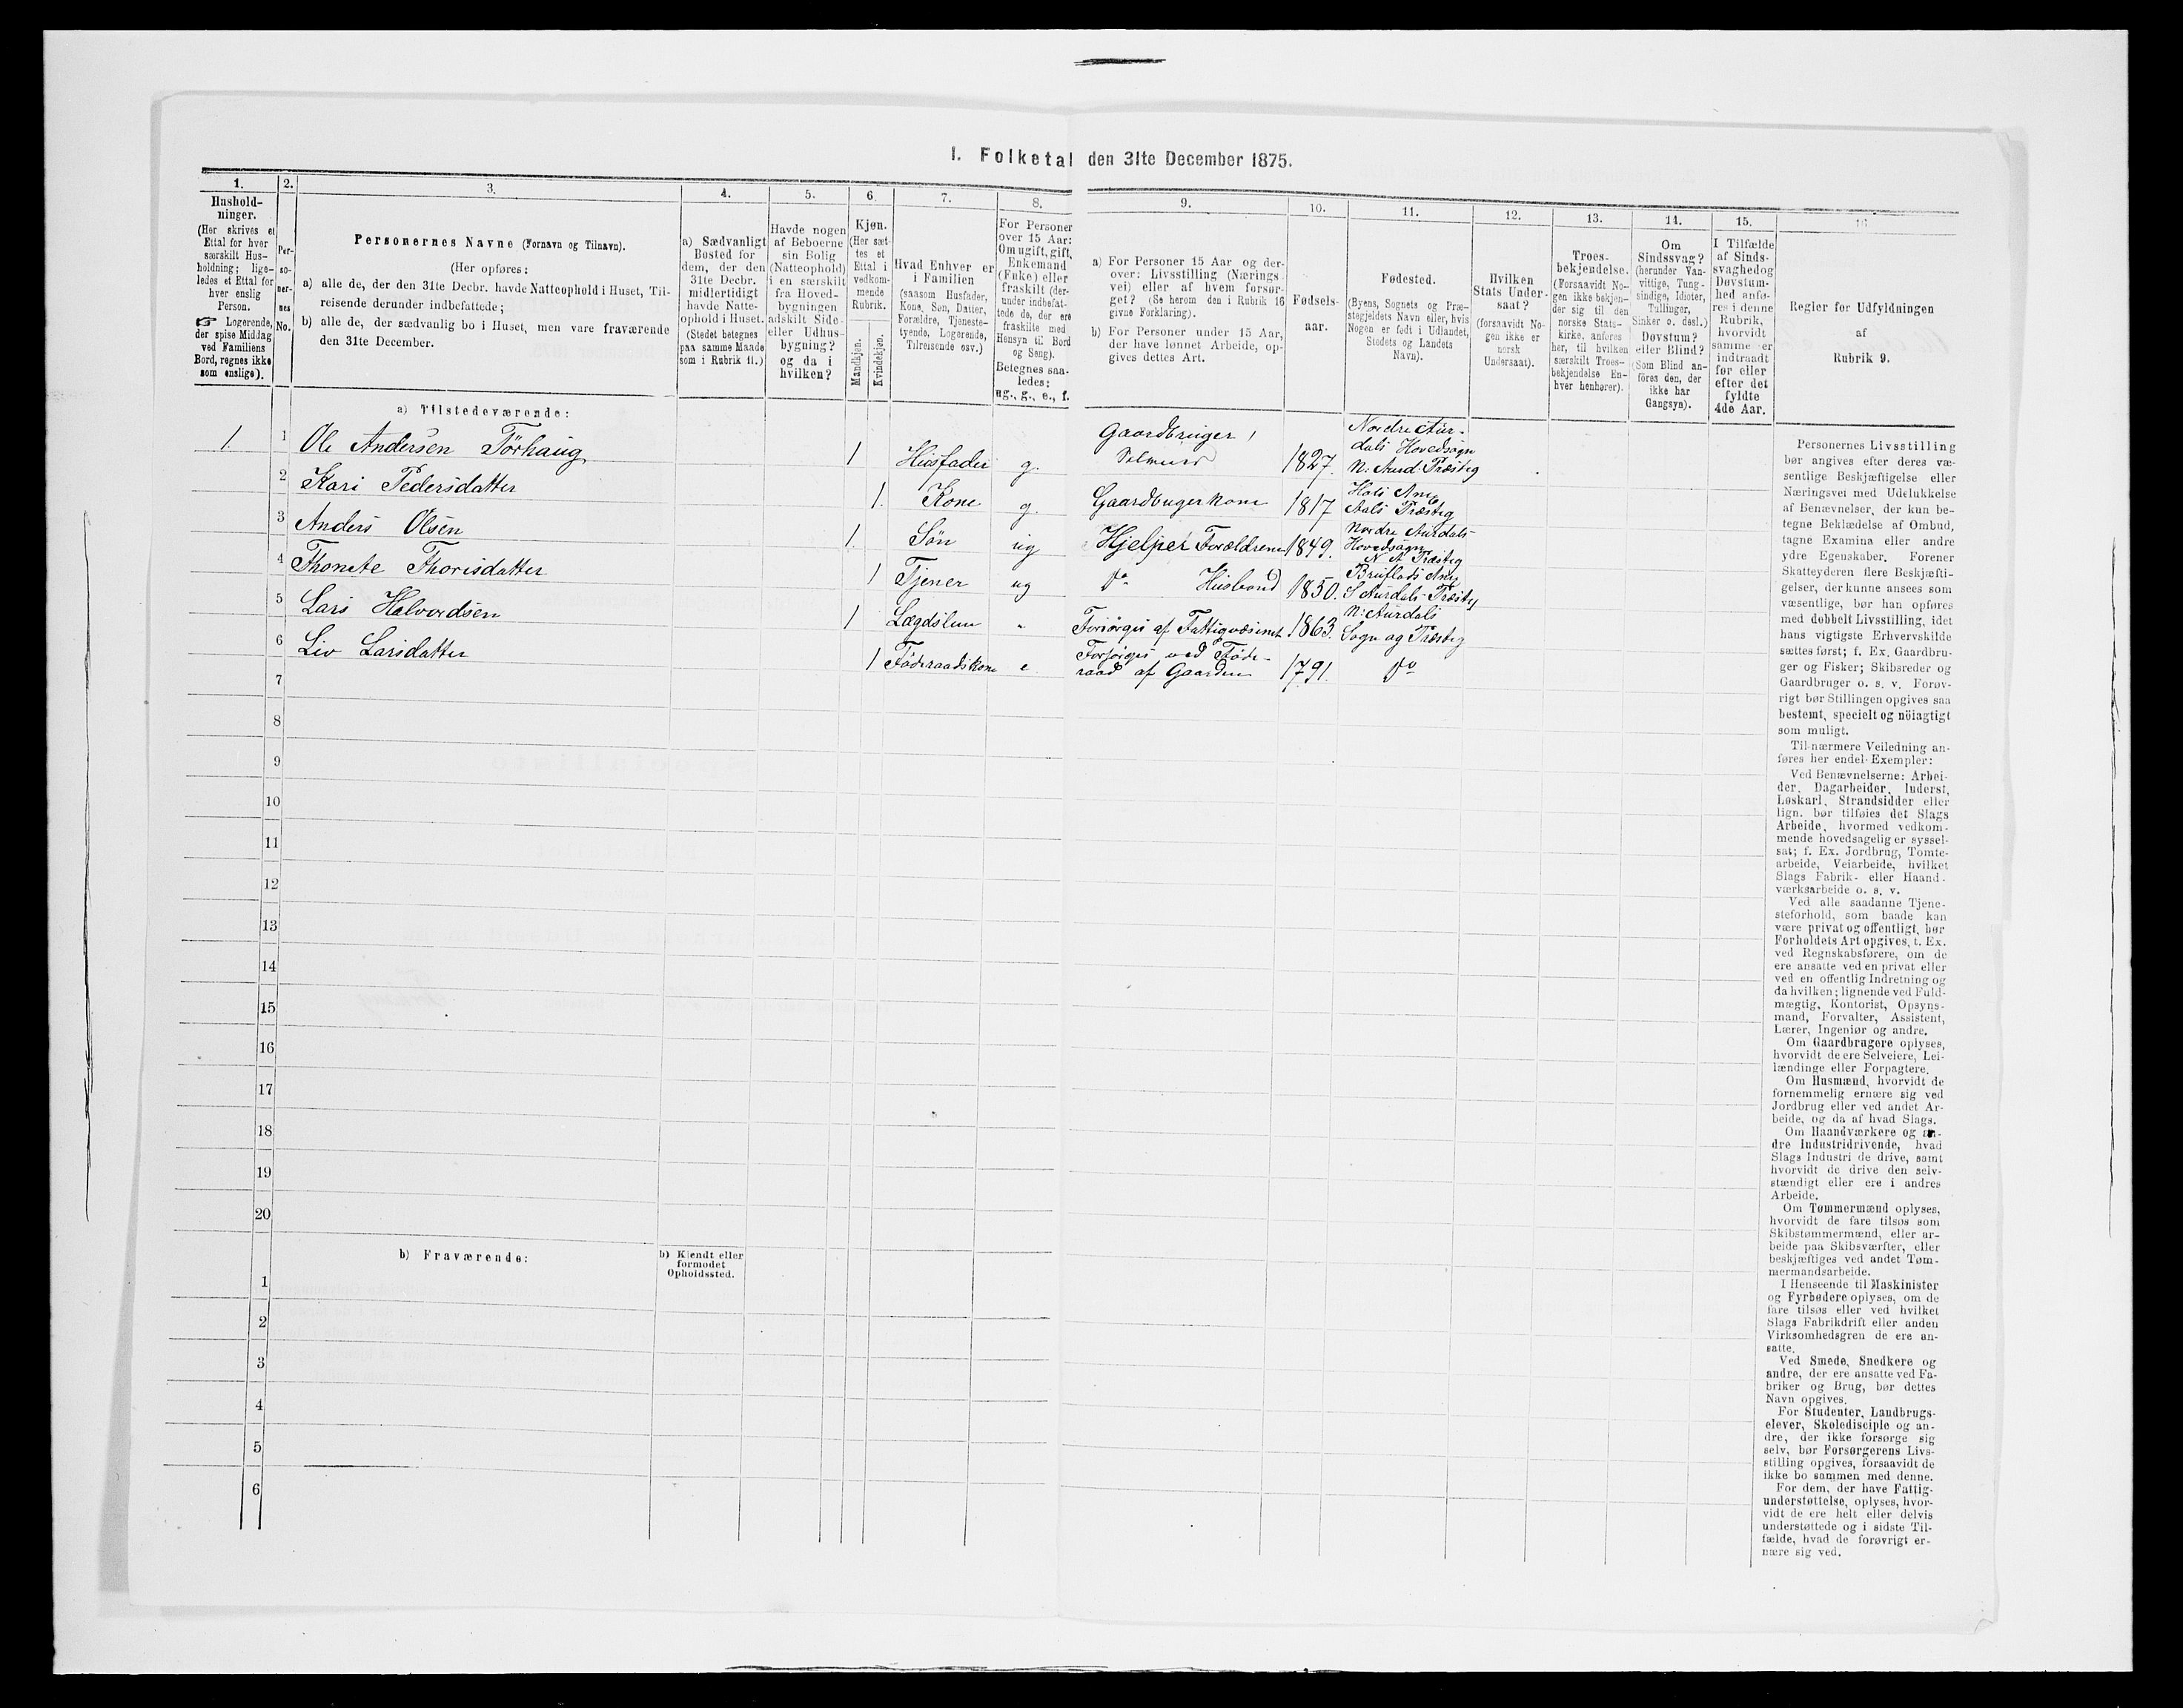 I. Folketal den 31te December 1875.
1.
Hushold-
ninger.
(Her skrives et
Ettal for hver
særskilt Hus-
holdning; lige-
ledes et Ettal for
hver enslig
Person.
☞ Logerende,
der spise Middag
ved Familiens
Bord, regnes ikke
som enslige).
2.
Per-
so-
ner-
nes
No.
3.
Personernes Navne (Fornavn og Tilnavn).
(Her opføres:
a) alle de, der den 31te Decbr. havde Natteophold i Huset, Til-
reisende derunder indbefattede;
b) alle de, der sædvanlig bo i Huset, men vare fraværende
den 31te December.
4.
a) Sædvanligt
Bosted for
dem, der den
31te Decbr.
midlertidigt
havde Natte-
ophold i Huset.
(Stedet betegnes
paa samme Maade
som i Rubrik 11.)
5.
Havde nogen
af Beboerne
sin Bolig
(Natteophold)
i en særskilt
fra Hoved-
bygningen
adskilt Side-
eller Udhus-
bygning?
og da i
hvilken?
6.
Kjøn.
(Her sæt-
tes et
Ettal i
vedkom-
mende
Rubrik.
Mandkjøn.
Kvindekjøn.
7.
Hvad Enhver er
i Familien
(saasom Husfader,
Kone, Søn, Datter,
Forældre, Tjeneste-
tyende, Logerende,
Tilreisende osv.)
8.
For Personer
over 15 Aar:
Om ugift, gift,
Enkemand
(Enke) eller
fraskilt (der-
under indbefat-
tede de, der ere
fraskilte med
Hensyn til Bord
og Seng).
Betegnes saa-
ledes:
ug., g., e., f.
9.
a) For Personer 15 Aar og der-
over: Livsstilling (Nærings-
vei) eller af hvem forsør-
get? (Se herom den i Rubrik 16
givne Forklaring).
b) For Personer under 15 Aar,
der have lønnet Arbeide, op-
gives dettes Art.
10.
Fødsels-
aar.
11.
Fødested.
(Byens, Sognets og Præ-
stegjeldets Navn eller, hvis
Nogen er født i Udlandet,
Stedets og Landets
Navn).
12.
Hvilken
Stats Under-
saat?
(forsaavidt No-
gen ikke er
norsk
Undersaat).
13.
Troes-
bekjendelse.
(Forsaavidt No-
gen ikke bekjen-
der sig til den
norske Stats-
kirke, anføres
her, til hvilken
særskilt Troes-
bekjendelse En-
hver henhører).
14.
Om
Sindssvag?
(herunder Van-
vittige, Tung-
sindige, Idioter,
Tullinger,
Sinker o. desl.)
Døvstum?
eller Blind?
(Som Blind an-
føres den, der
ikke har
Gangsyn).
15.
I Tilfælde
af Sinds-
svaghed og
Døvstum-
hed anfø-
res i denne
Rubrik,
hvorvidt
samme er
indtraadt
før eller
efter det
fyldte
4de Aar.
16
Regler for Udfyldningen
af
Rubrik 9.
a) Tilstedeværende:
1 1 Ole Andersen Törhaug 1 Husfader g. Gaardbruger, 1827. Nordre Aur-
dals Hovedsogn
N: Aurd: Præsteg
2 Kari Pedersdatter 1. Kone g. Gaardbugerkone 1817 Hols Anx
Aals Præsteg
3 Anders Olsen 1 Søn ug Hjelper Forældrene 1849. Nordre Aurdals
Hovedsogn
N A Præsteg
4 Thorisdatter 1 Tjener ug do Husbond 1850. Bruflads Anx
S Aurdals Præsteg
5 Lars Halvordsen 1 Lægdslem „ Forsørges af Fattigvæsenet 1863. N: Aurdals
Sogn og Præsteg
6 Liv Larsdatter 1 Föderaadskone e. Forsørges ved Föde-
raad af Gaarden 1791. do
7
8
9
10
11
12
13
14
15
16
17
18
19
20
b) Fraværende:
b) Kjendt eller
formodet
Opholdssted.
1
2
3
4
5
6
Personernes Livsstilling
bør angives efter deres væ-
sentlige Beskjæftigelse eller
Næringsvei med Udelukkelse
af Benævnelser, der kun be-
tegne Beklædelse af Ombud,
tagne Examina eller andre
ydre Egenskaber. Forener
Skatteyderen flere Beskjæfti-
gelser, der kunne ansees som
væsentlige, bør han opføres
med dobbelt Livsstilling, idet
hans vigtigste Erhvervskilde
sættes først; f. Ex. Gaardbru-
ger og Fisker; Skibsreder og
Gaardbruger o. s. v. Forøv-
rigt bør Stillingen opgives saa
bestemt, specielt og nöiagtigt
som muligt.
Til nærmere Veiledning an-
føres her endel Exempler:
Ved Benævnelserne: Arbei-
der, Dagarbeider, Inderst,
Løskarl, Strandsidder eller
lign. bør tilføies det Slags
Arbeide, hvormed vedkom-
mende hovedsagelig er syssel-
sat; f. Ex. Jordbrug, Tomte-
arbeide, Veiarbeide, hvilket
Slags Fabrik- eller Haand-
værksarbeide o. s. v.
Ved alle saadanne Tjene-
steforhold, som baade kan
være privat og offentligt, bør
Forholdets Art opgives, t. Ex.
ved Regnskabsførere, om de
ere ansatte ved en privat eller
ved en offentlig Indretning og
da hvilken; lignende ved Fuld-
mægtig, Kontorist, Opsyns-
mand, Forvalter, Assistent,
Lærer, Ingeniør og andre.
Om Gaardbrugere oplyses,
hvorvidt de ere Selveiere, Lei-
lændinge eller Forpagtere.
Om Husmænd, hvorvidt de
fornemmelig ernære sig ved
Jordbrug eller ved andet Ar-
beide, og da af hvad Slags.
Om Haandværkere og an-
dre Industridrivende, hvad
Slags Industri de drive, samt
hvorvidt de drive den selv-
stændigt eller ere i andres
Arbeide.
Om Tømmermænd oplyses,
hvorvidt de fare tilsøs som
Skibstømmermænd, eller ar-
beide paa Skibsværfter, eller
beskjæftiges ved andet Tøm-
mermandsarbeide.
I Henseende til Maskinister
og Fyrbødere oplyses, om de
fare tilsøs eller ved hvilket
Slags Fabrikdrift eller anden
Virksomhedsgren de ere an-
satte.
Ved Smede, Snedkere og
andre, der ere ansatte ved Fa-
briker og Brug, bør dettes
Navn opgives.
For Studenter, Landbrugs-
elever, Skoledisciple og an-
dre, der ikke forsørge sig
selv, bør Forsørgerens Livs-
stilling opgives, forsaavidt de
ikke bo sammen med denne.
For dem, der have Fattig-
understøttelse, oplyses, hvor-
vidt de ere helt eller delvis
understøttede og i sidste Til-
fælde, hvad de forøvrigt er-
nære sig ved.